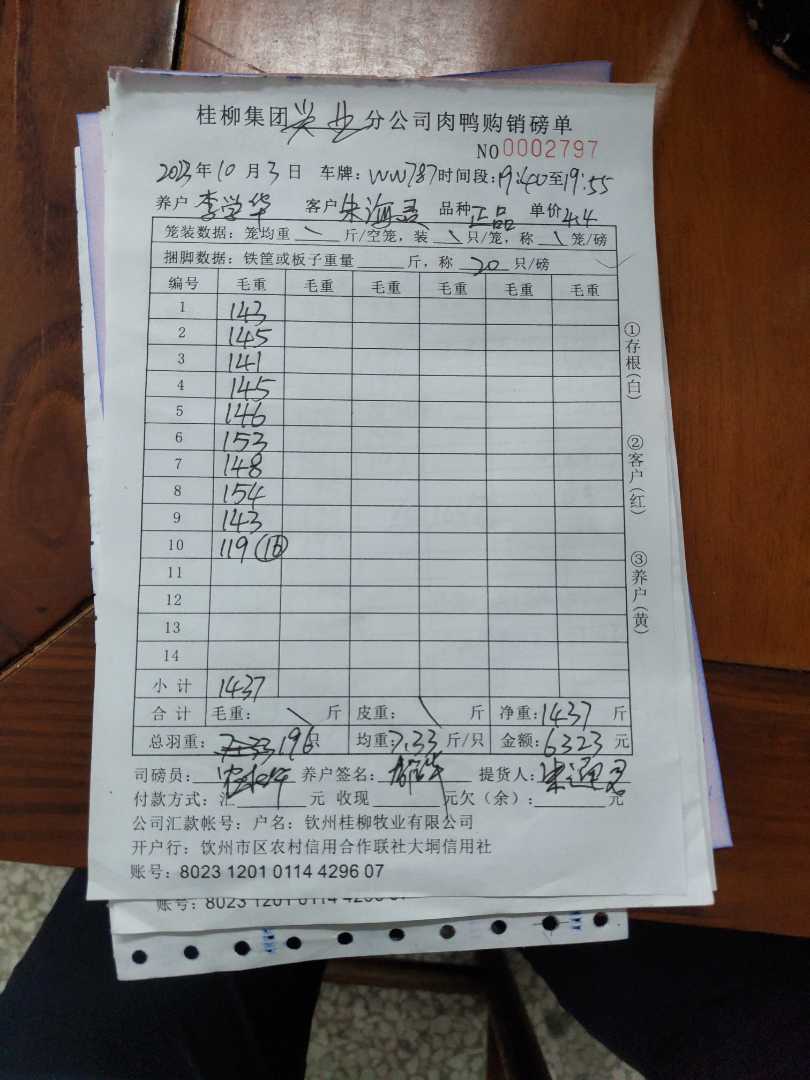 桂柳集团兴业分公司肉鸭购销磅单
NO 0002797
2023年10月3日 车牌:WW787 时间段:19:40至19:55
养户 李学华 客户 朱海 品种 正品 单价 4.4
笼装数据:笼均重 \ 斤/空笼,装 \ 只/笼,称 \ 笼/磅
捆脚数据:铁筐或板子重量 斤,称 20 只/磅
编号 毛重 毛重 毛重 毛重 毛重 毛重
1 143
2 145
3 141
4 145
5 146
6 153
7 148
8 154
9 143
10 119 (16)
11
12
13
14
小计 1437
合计 毛重: \ 斤 皮重: \ 斤 净重:1437 斤
总羽重: 7.33 196只 均重:7.33 斤/只 金额:6323 元
司磅员: 养户签名: 提货人:
付款方式:汇 元 收现 元欠(余): 元
公司汇款帐号:户名:钦州桂柳牧业有限公司
开户行:钦州市区农村信用合作联社大垌信用社
账号:8023 1201 0114 4296 07
①存根(白)
②客户(红)
③养户(黄)
账号:8023 1201 0114 4296 07